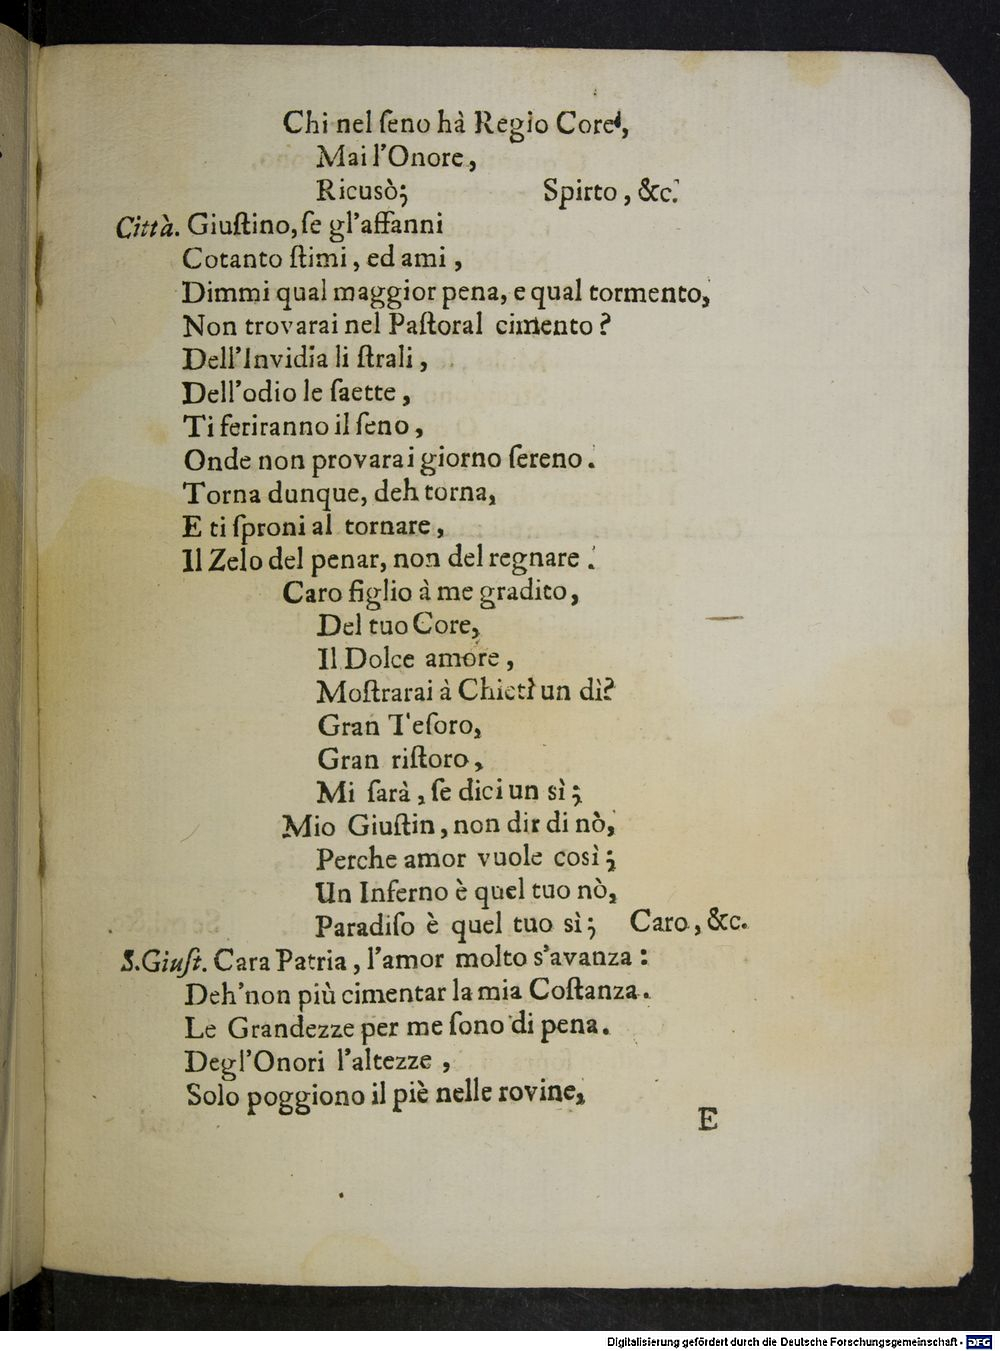 Chi nel ſeno hà Regio Core,
Mai l'Onore,
Ricusò; Spirto, &c.
Città. Giuſtino, ſe gl'affanni
Cotanto ſtimi, ed ami,
Dimmi qual maggior pena, e qual tormento,
Non trovarai nel Paſtoral cimento?
Dell'Invidia li ſtrali,
Dell'odio le ſaette,
Ti feriranno il ſeno,
Onde non provarai giorno ſereno.
Torna dunque, deh torna,
E ti ſproni al tornare,
Il Zelo del penar, non del regnare.
Caro figlio à me gradito,
Del tuo Core,
Il Dolce amore,
Moſtrarai à Chieti un dì?
Gran Teſoro,
Gran riſtoro,
Mi ſarà, ſe dici un sì;
Mio Giuſtin, non dir di nò,
Perche amor vuole così;
Un Inferno è quel tuo nò,
Paradiſo è quel tuo sì; Caro, &c.
S.Giuſt. Cara Patria, l'amor molto s'avanza:
Deh'non più cimentar la mia Coſtanza.
Le Grandezze per me ſono di pena.
Degl'Onori l'altezze,
Solo poggiono il piè nelle rovine,
E
Digitalisierung gefördert durch die Deutsche Forschungsgemeinschaft - DFG